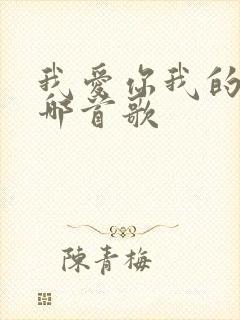 我愛你我的
那首歌
陳青梅